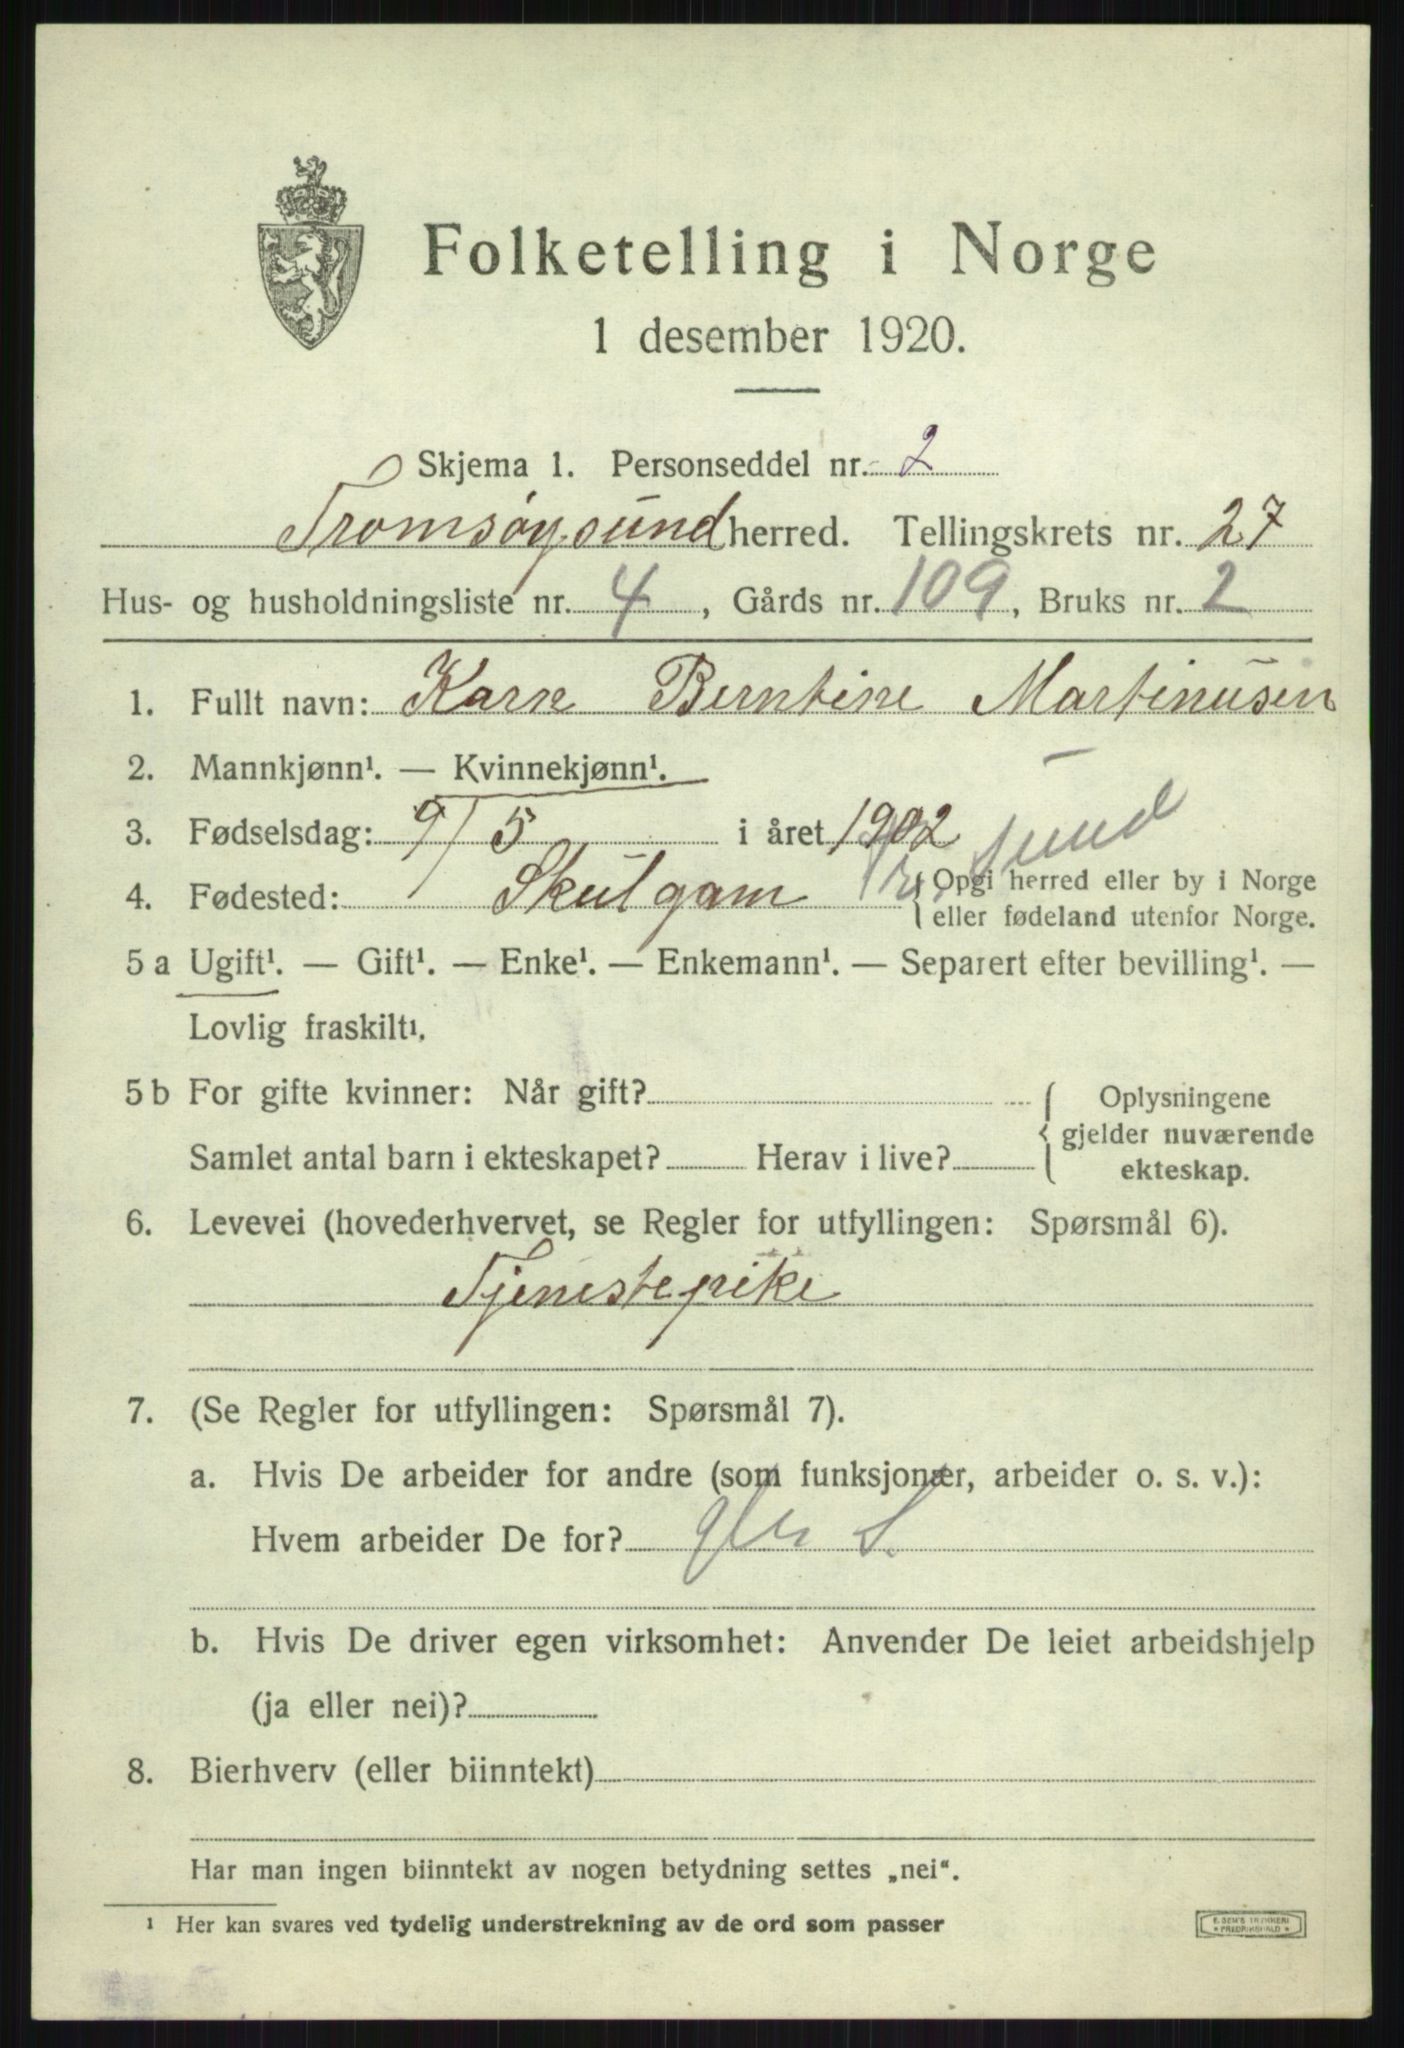 Folketelling i Norge
1 desember 1920.
Skjema 1. Personseddel nr. 2
Tromsøysund herred. Tellingskrets nr. 27
Hus- og husholdningsliste nr. 4, Gårds nr. 109, Bruks nr. 2
1. Fullt navn: Karn Berntine Martinusen
2. Mannkjønn¹. — Kvinnekjønn¹.
3. Fødselsdag: 9/5 i året 1902
Tr. sund
4. Fødested: Skulgam { Opgi herred eller by i Norge
eller fødeland utenfor Norge.
5 a Ugift¹. — Gift¹. — Enke¹. — Enkemann¹. — Separert efter bevilling¹. —
Lovlig fraskilt¹.
5 b For gifte kvinner: Når gift? { Oplysningene
gjelder nuværende
Samlet antal barn i ekteskapet? Herav i live? ekteskap.
6. Levevei (hovederhvervet, se Regler for utfyllingen: Spørsmål 6).
Tjenestepike
7. (Se Regler for utfyllingen: Spørsmål 7).
a. Hvis De arbeider for andre (som funksjonær, arbeider o. s. v.):
Hvem arbeider De for?
b. Hvis De driver egen virksomhet: Anvender De leiet arbeidshjelp
(ja eller nei)?
8. Bierhverv (eller biinntekt)
Har man ingen biinntekt av nogen betydning settes „nei“.
¹ Her kan svares ved tydelig understrekning av de ord som passer
E. SEM'S TRYKKERI
* FREDRIKSHALD *